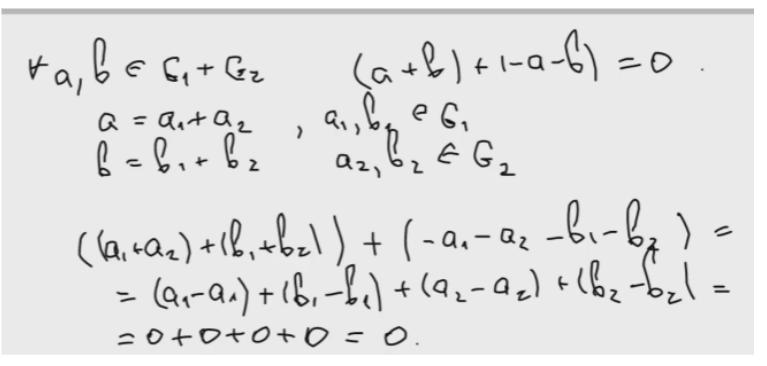 ∀ a, b ∈ G₁ + G₂ (a + b) + (-a - b) = 0 .
a = a₁ + a₂ , a₁, b₁ ∈ G₁
b = b₁ + b₂ a₂, b₂ ∈ G₂
((a₁ + a₂) + (b₁ + b₂)) + (-a₁ - a₂ - b₁ - b₂) =
= (a₁ - a₁) + (b₁ - b₁) + (a₂ - a₂) + (b₂ - b₂) =
= 0 + 0 + 0 + 0 = 0.